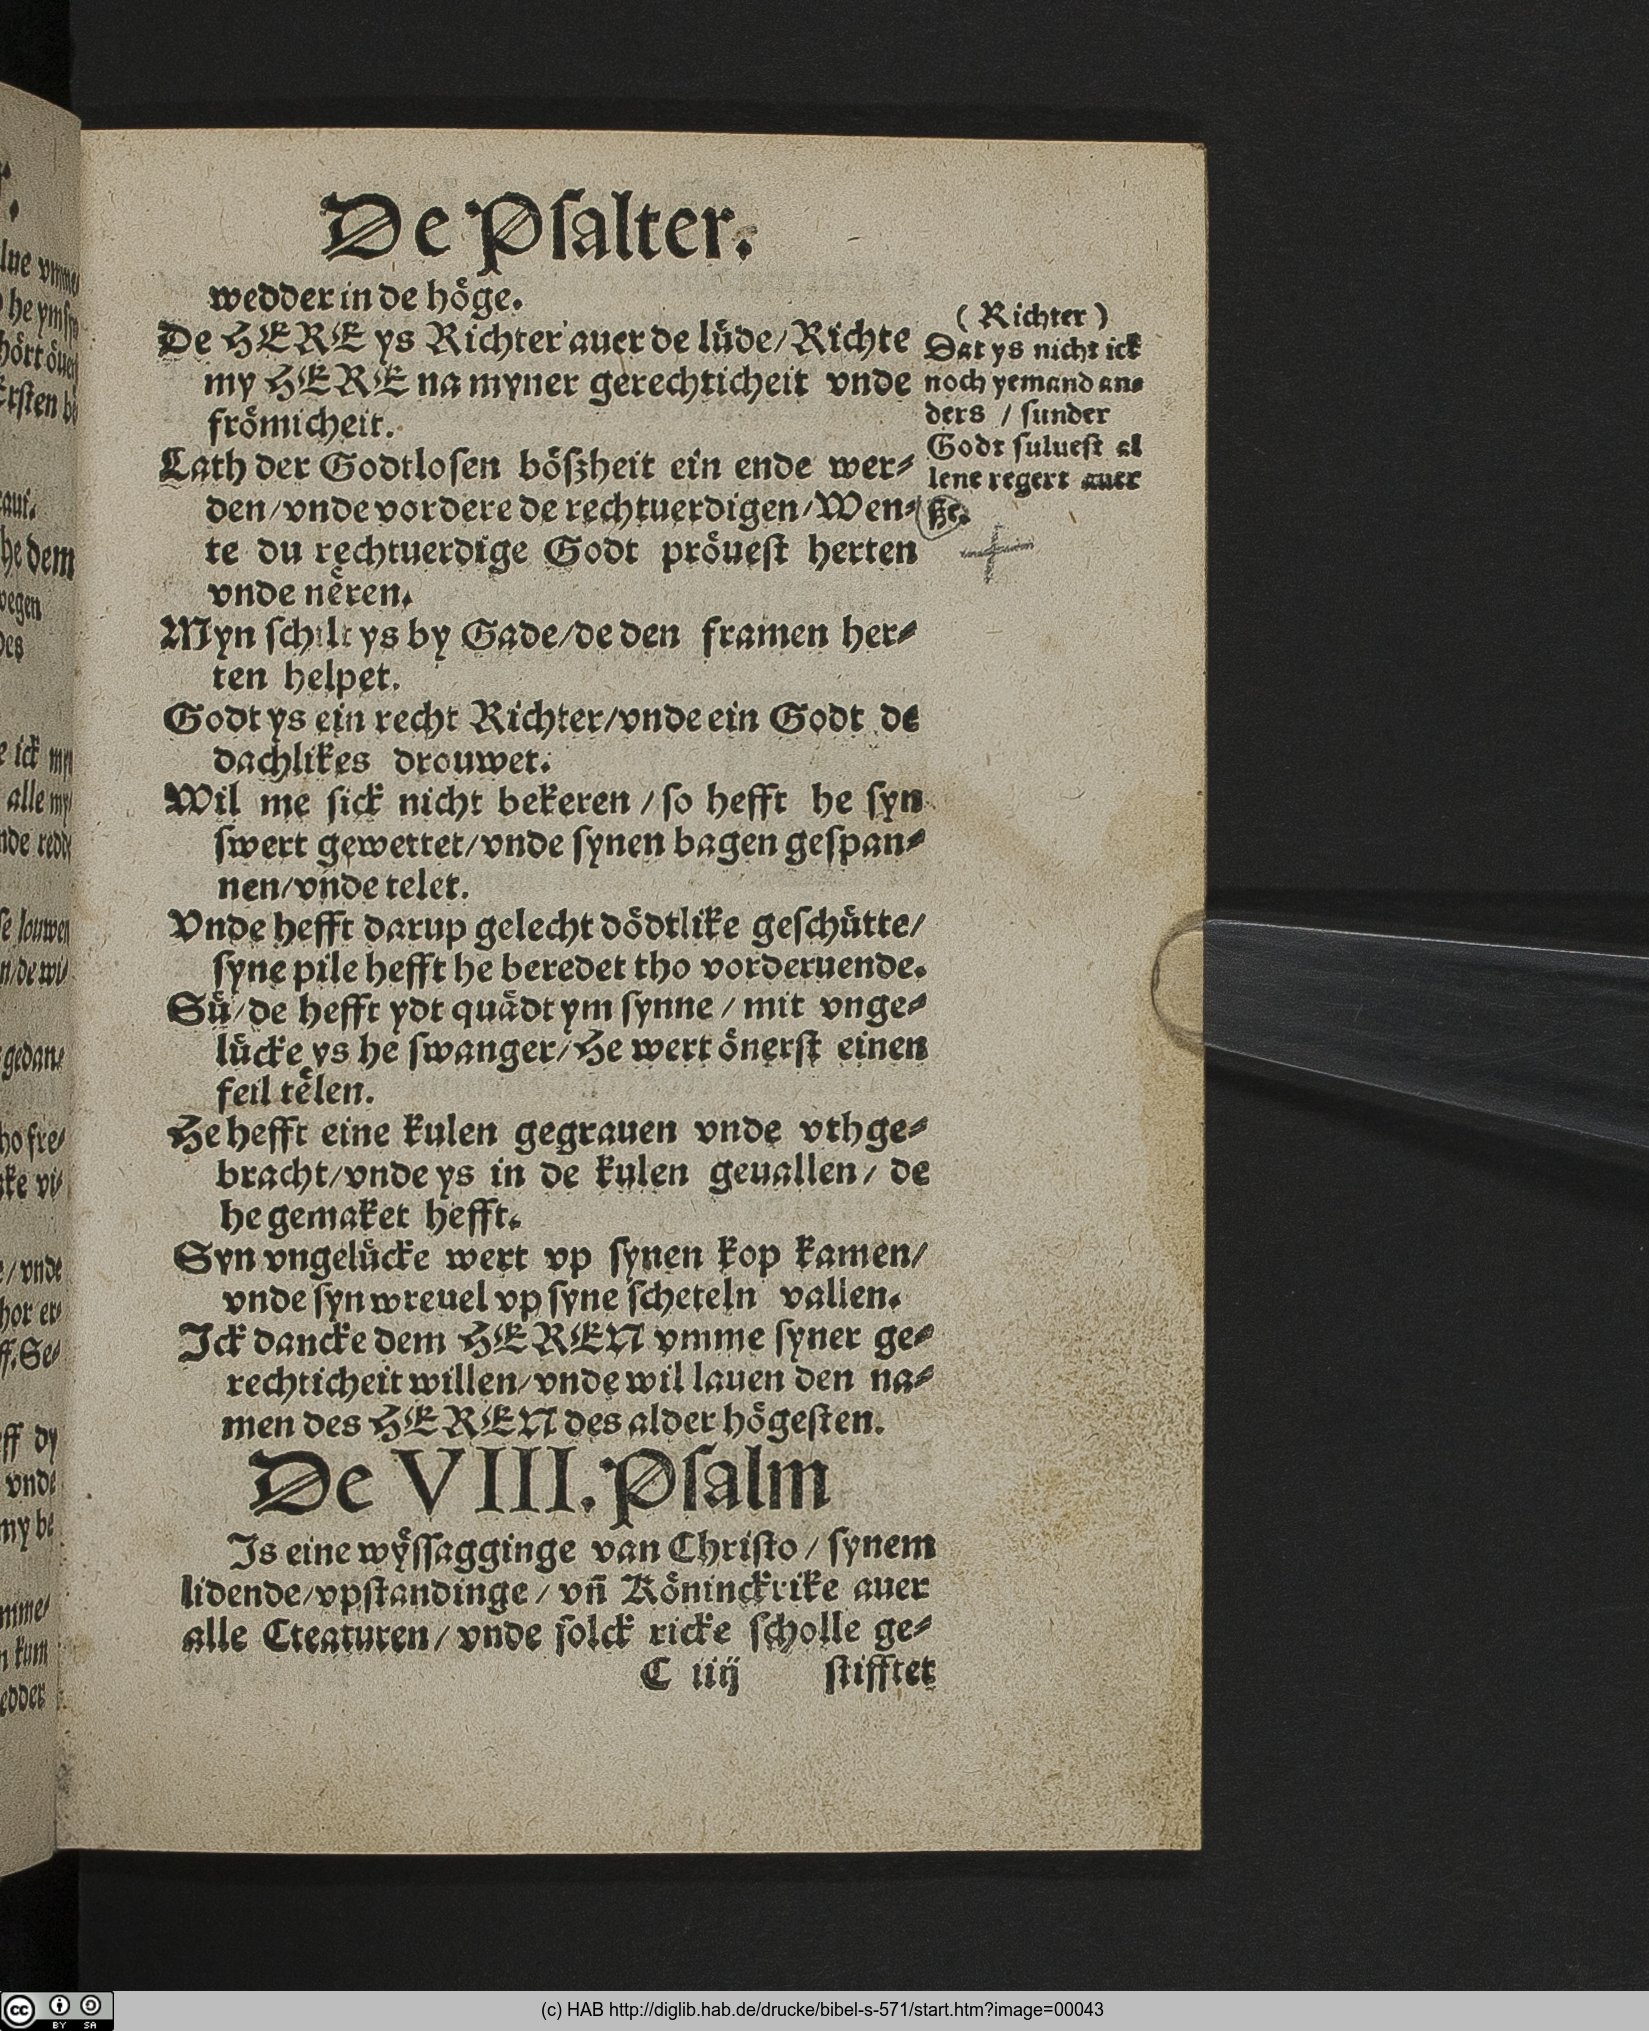 De Psalter.
wedder in de hoͤge.
De HERE ys Richter auer de luͤde/Richte
my HERE na myner gerechticheit vnde
froͤmicheit.
Lath der Godtlosen boͤßheit ein ende wer⸗
den/vnde vordere de rechtuerdigen/Wen⸗
te du rechtuerdige Godt proͤuest herten
vnde neͤren.
Myn schilt ys by Gade/de den framen her⸗
ten helpet.
Godt ys ein recht Richter/vnde ein Godt de
dachlikes drouwet.
Wil me sick nicht bekeren/so hefft he syn
swert gewettet/vnde synen bagen gespan⸗
nen/vnde telet.
Vnde hefft darup gelecht doͤdtlike geschuͤtte/
syne pile hefft he beredet tho vorderuende.
Suͤ/de hefft ydt quaͤdt ym synne/mit vnge⸗
luͤcke ys he swanger/He wert oͤnerst einen
feil teͤlen.
He hefft eine kulen gegrauen vnde vthge⸗
bracht/vnde ys in de kulen geuallen/de
he gemaket hefft.
Syn vngeluͤcke wert vp synen kop kamen/
vnde syn wreuel vp syne scheteln vallen.
Ick dancke dem HEREN vmme syner ge⸗
rechticheit willen/vnde wil lauen den na⸗
men des HEREN des alder hoͤgesten.
(Richter)
Dat ys nicht ick
noch yemand an⸗
ders / sunder
Godt suluest al
lene regert auer
De VIII. Psalm
Is eine wyͤssagginge van Christo/synem
lidende/vpstandinge/vn̄ Koͤninckrike auer
alle Cteaturen/vnde solck ricke scholle ge⸗
C iiij stifftet
(c) HAB http://diglib.hab.de/drucke/bibel-s-571/start.htm?image=00043
cc BY SA